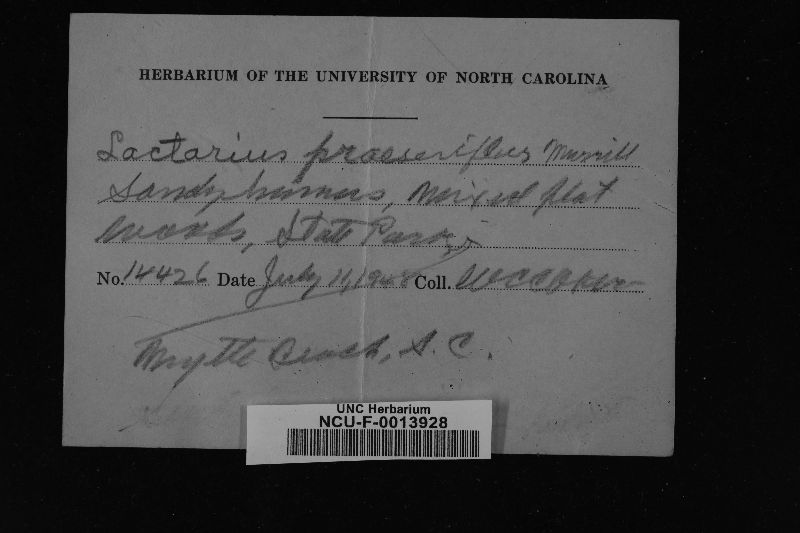 HERBARIUM OF THE UNIVERSITY OF NORTH CAROLINA
Lactarius praeserifluus Murrill
Sandy humus, mixed flat
woods, State Park,
No. 14426 Date July 11, 1948 Coll. WCCoker
Myrtle Beach, S.C.
UNC Herbarium
NCU-F-0013928